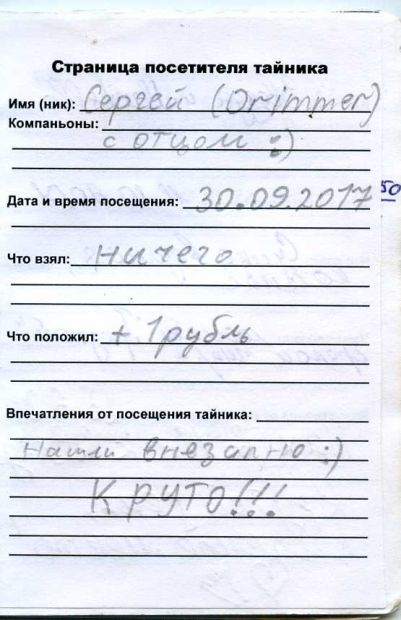 Страница посетителя тайника
Имя (ник): Сергей (Drimmer)
Компаньоны:
с отцом :)
Дата и время посещения: 30.09.2017
50
Что взял: ничего
Что положил: + 1 рубль
Впечатления от посещения тайника:
Нашли внезапно :)
Круто!!!